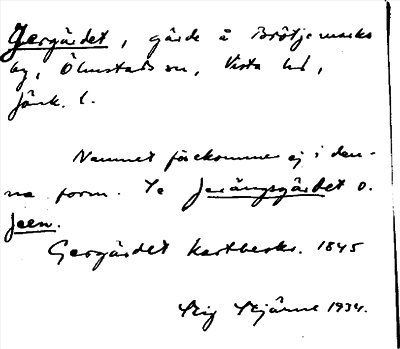 Jergärdet, gärde å Brötjemarks
by, Ölmstads sn, Vista hd,
Jönk. l.
Namnet förekommer ej i den-
na form. Se Jerängsgärdet o.
Jeen.
Gergärdet kartbeskr. 1845
Stig Stjärne 1934.